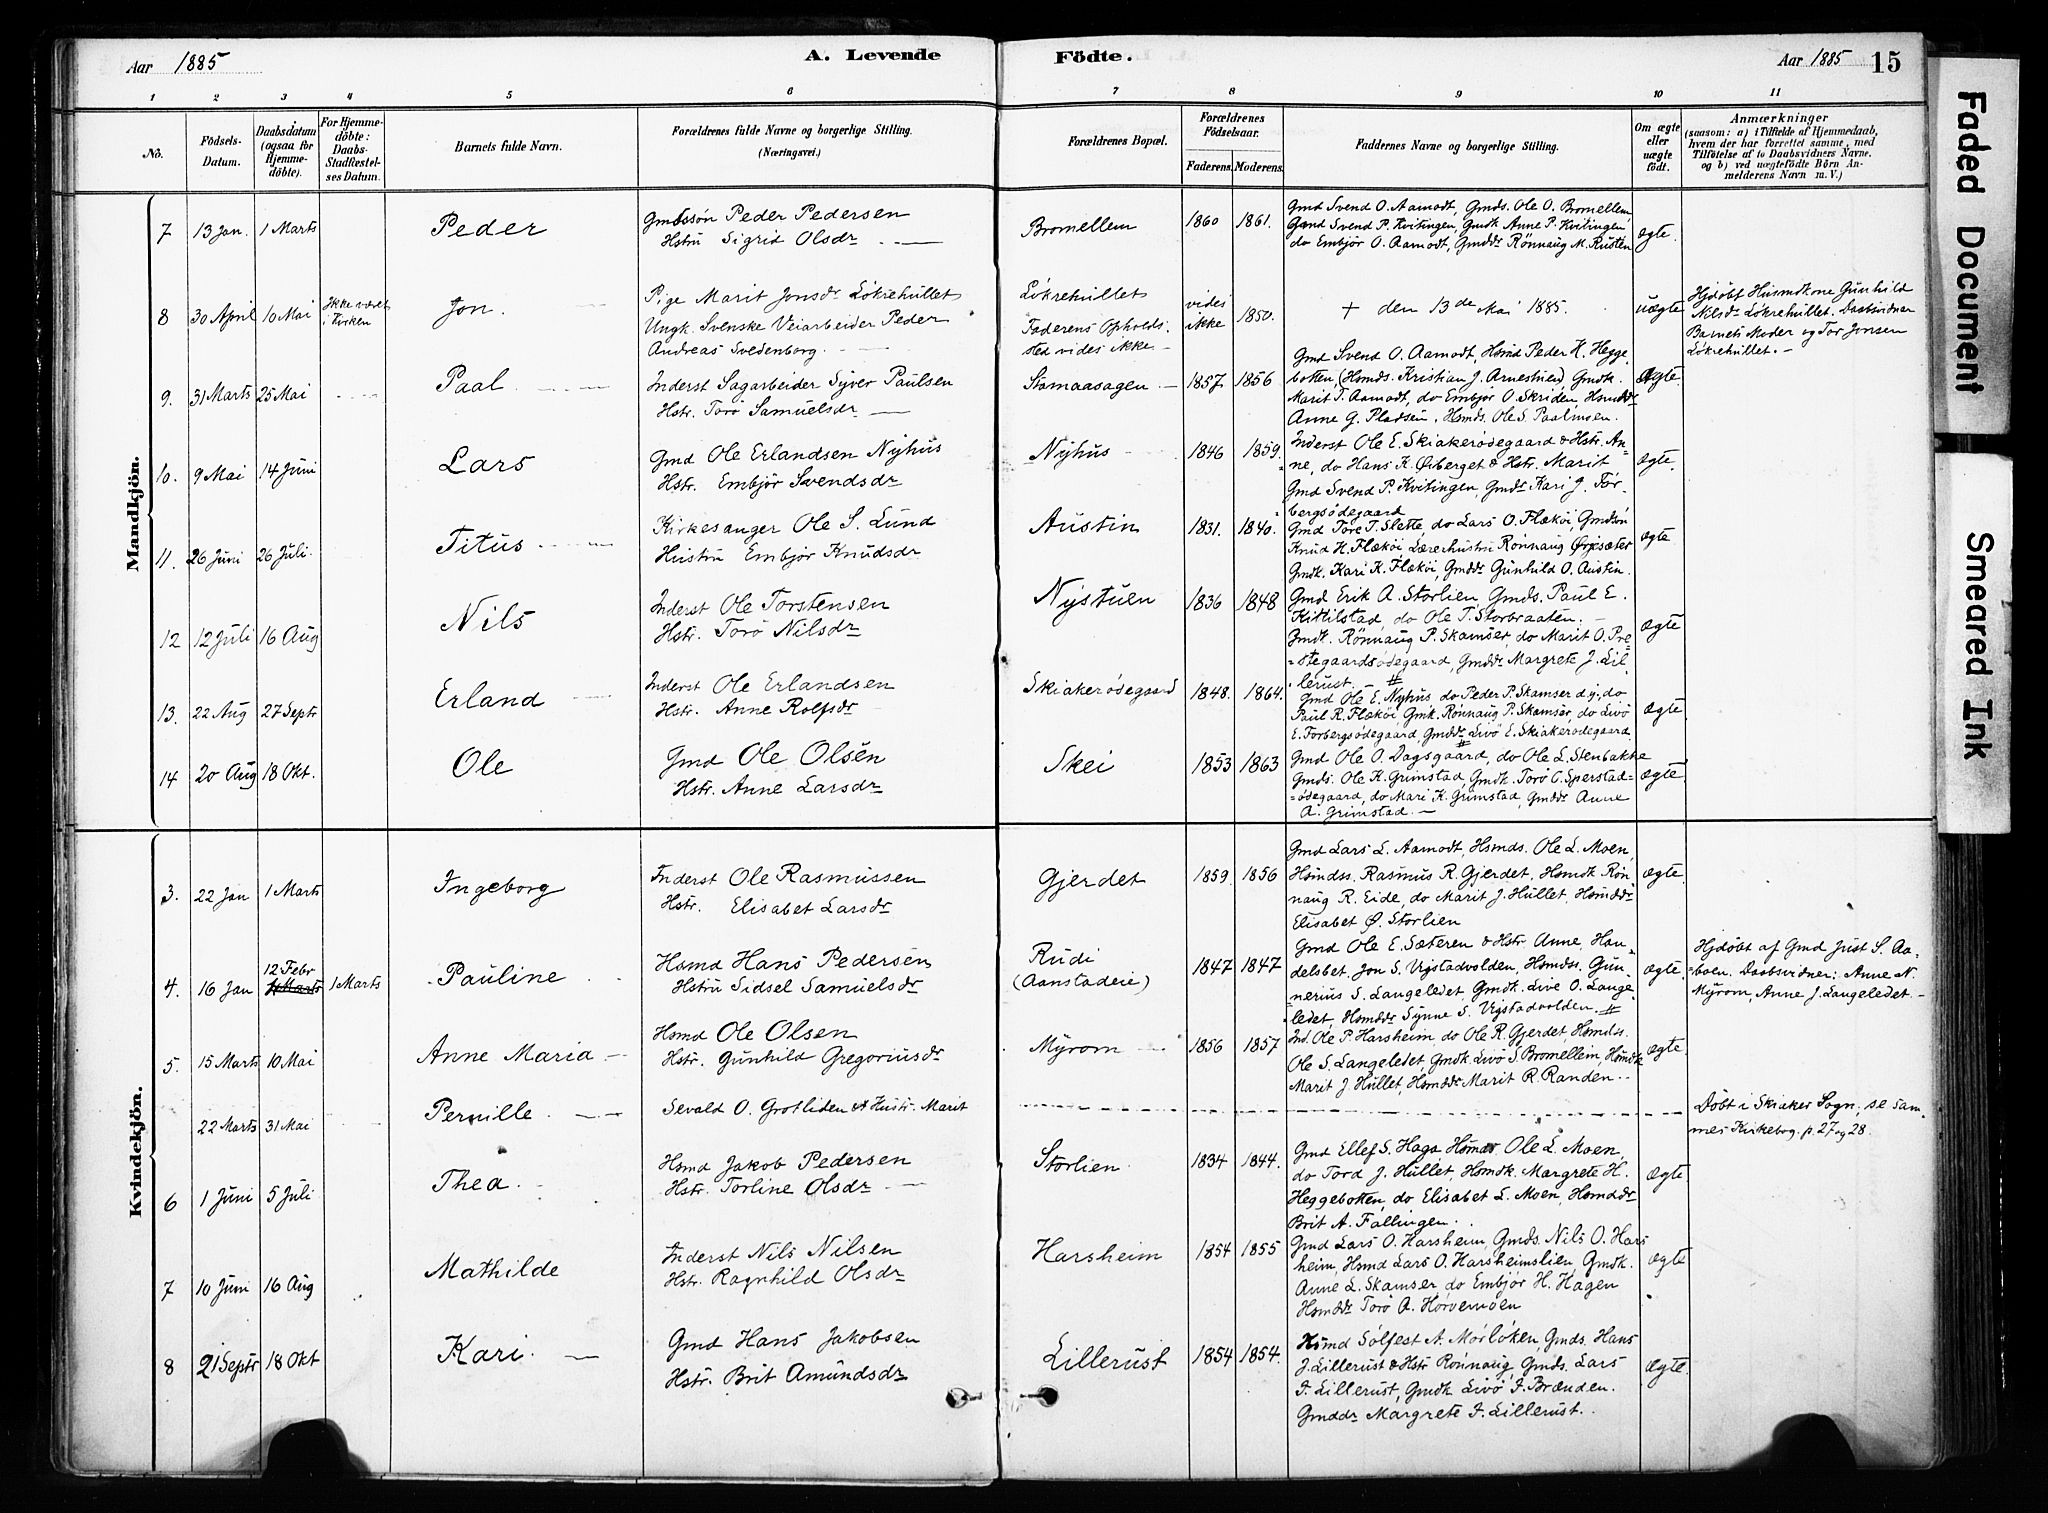 Aar 1885
A. Levende
Födte.
Aar 1885 15
1 2 3 4 5 6 7 8 9 10 11
No.
Födsels-Datum.
Daabsdatum (ogsaa for Hjemmedöbte).
For Hjemmedöbte: Daabs-Stadfæstelses Datum.
Barnets fulde Navn.
Forældrenes fulde Navne og borgerlige Stilling.
(Næringsvei.)
Forældrenes Bopæl.
Forældrenes Födselsaar.
Faderens. Moderens.
Faddernes Navne og borgerlige Stilling.
Om ægte eller uægte födt.
Anmærkninger
(saasom: a) i Tilfælde af Hjemmedaab,
hvem der har forrettet samme, med
Tilföielse af to Daabsvidners Navne.
og b) ved uægtefödte Börn Anmelderens Navn m. V.)
Mandkjön.
7 13 Jan. 1 Marts Peder
Gmdssön Peder Pedersen
Hstru Sigrid Olsdr
Bromellem 1860 1861.
Gmd Svend O. Aamodt, Gmds. Ole O. Bromellem,
Gmd Svend P. Kvitingen, Gmdk Anne P. Kvitingen
do Embjör O. Aamodt, Gmddr Rönnaug M. Rusten
ægte.
8 30 April 10 Mai Ikke været i Kirken Jon.
Pige Marit Jonsdr Lökrehullet
Ungk. Svenske Veiarbeider Peder
Andreas Svedenborg.
Lökrehullet
Faderens Opholds-
sted vides ikke
vides ikke 1850.
+ den 13de Mai 1885.
uægte
Hjdöbt Husmdkone Gunhild
Nilsdr Lökrehullet. Daabsvidner
Barnets Moder og Tor Jonsen
Lökrehullet.
9. 31 Marts 25 Mai Paal
Inderst Sagarbeider Syver Paulsen
Hstr. Torö Samuelsdr
Stamaasagen 1857 1856
Gmd Svend O. Aamodt, Hsmd Peder K. Hegge
botten, (Hsmds. Kristian J. Arnestuen), Gmdk.
Marit T. Aamodt, do Embjör O. Skriden, Hsmddr
Anne G. Pladsen, Hsmds. Ole S. Paalmoen.
Ægte
10. 9 Mai 14 Juni Lars
Gmd Ole Erlandsen Nyhus
Hstr. Embjör Svendsdr
Nyhus 1846 1859.
Inderst Ole E. Skiakerödegaard & Hstr. An-
ne, do Hans K. Öiberget & Hstr. Marit
Gmd Svend P. Kvitingen, Gmdr Kari J. Tor-
bergsödegaard
ægte.
11. 26 Juni 26 Juli. Titus
Kirkesanger Ole S. Lund
Hustru Embjör Knudsdr
Austin 1831. 1840.
Gmd Tore T. Slette, do Lars O. Flæköi, Gmdsön
Knud H. Flæköi, Lærerhustru Rönnaug Örjesæter
Gmdk. Kari K. Flæköi, Gmddr Gunhild O. Austin.
ægte
12 12 Juli 16 Aug Nils
Inderst Ole Torstensen
Hstr. Torö Nilsdr
Nystuen 1836 1848
Gmd Erik A. Storlien, Gmds. Paul E.
Kittilstad, do Ole T. Storbraaten.
Gmdk. Rönnaug P. Skamser, do Marit O. Pre-
stegaardsödegaard, Gmddr Margrete J. Lil-
lerust. #
ægte
13. 22 Aug 27 Septr Erland
Inderst Ole Erlandsen
Hstr. Anne Rolfsdr
Skiakerödegaard 1848. 1864.
Gmd Ole E. Nyhus do Peder P. Skamser d.y., do
Paul R. Flæköi, Gmk. Rönnaug P. Skamser, do Livö
E. Torbergsödegaard, Gmddr Livö E. Skiakerödegaard.
#
ægte.
14 20 Aug 18 Okt. Ole
Gmd Ole Olsen
Hstr. Anne Larsdr
Skei 1853 1863
Gmd Ole O. Dagsgaard, do Ole L. Stenbakke
Gmds. Ole K. Grimstad, Gmdk. Torö C. Sperstad-
ödegaard, do Mari K. Grimstad, Gmddr Anne
A. Grimstad.
ægte
Kvindekjön.
3. 22 Jan 1 Marts Ingeborg
Inderst Ole Rasmussen
Hstr. Elisabet Larsdr
Gjerdet 1859. 1856
Gmd Lars L. Aamodt, Hsmds. Ole L. Moen,
Hsmdss. Rasmus R. Gjerdet, Hsmdk Rön
naug R. Eide, do Marit J. Hullet, Hsmddr
Elisabet Ø. Storlien
ægte.
4. 16 Jan 12 Febr 1 Marts Pauline
Hsmd Hans Pedersen
Hstru Sidsel Samuelsdr
Rudi
(Aanstadeie) 1847 1847
Gmd Ole E. Sæteren & Hstr. Anne, Han-
delsbet. Jon S. Vigstadvolden, Hsmdss. Gun-
nerius S. Langeledet, Gmdk. Live O. Lange-
ledet, Hsmddr Synne S. Vigstadvolden. #
ægte.
Hjdöbt af Gmd Just S. Aa-
boen. Daabsvidner: Anne N.
Myrom, Anne J. Langeledet.
5. 15 Marts 10 Mai Anne Maria
Hsmd Ole Olsen
Hstr. Gunhild Gregoriusdr
Myrom 1856 1857
Ind. Ole P. Harsheim, do Ole R. Gjerdet, Hsmdss.
Ole S. Langeledet, Gmdk Livö S. Bromellem, Hsmdk
Marit J. Hullet, Hsmddr Marit R. Randen.
ægte.
22 Marts 31 Mai Pernille
Sevald O. Grotliden & Hustr. Marit
Döbt i Skiaker Sogn, se sam-
mes Kirkebog. p. 27 og 28.
6 1 Juni 5 Juli Thea.
Hsmd Jakob Pedersen
Hstr. Torline Olsdr
Storlien 1834 1844.
Gmd Ellef S. Haga Hsmds Ole L. Moen,
do Tord J. Hullet, Hsmdk. Margrete H.
Heggebotten, do Elisabet L. Moen, Hsmddr
Brit A. Fallingen.
ægte
7 10 Juni 16 Aug Mathilde
Inderst Nils Nilsen
Hstr. Ragnhild Olsdr
Harsheim 1854 1855
Gmd Lars O. Harsheim, Gmds. Nils O. Hars
heim, Hsmd Lars O. Harsheimslien, Gmdk.
Anne L. Skamser, do Embjör H. Hagen
Hsmddr Torö A. Hörvemoen
ægte
8 21 Septr 18 Okt Kari.
Gmd Hans Jakobsen
Hstr. Brit Amundsdr
Lillerust 1854 1854.
Hsmd Solfest A. Mörlöken, Gmds. Hans
J. Lillerust & Hstr Rönnaug, Gmds. Lars
J. Lillerust, Gmdk Livö J. Brænden.
Gmddr Margrete J. Lillerust.
ægte.
Faded Document
Smeared Ink